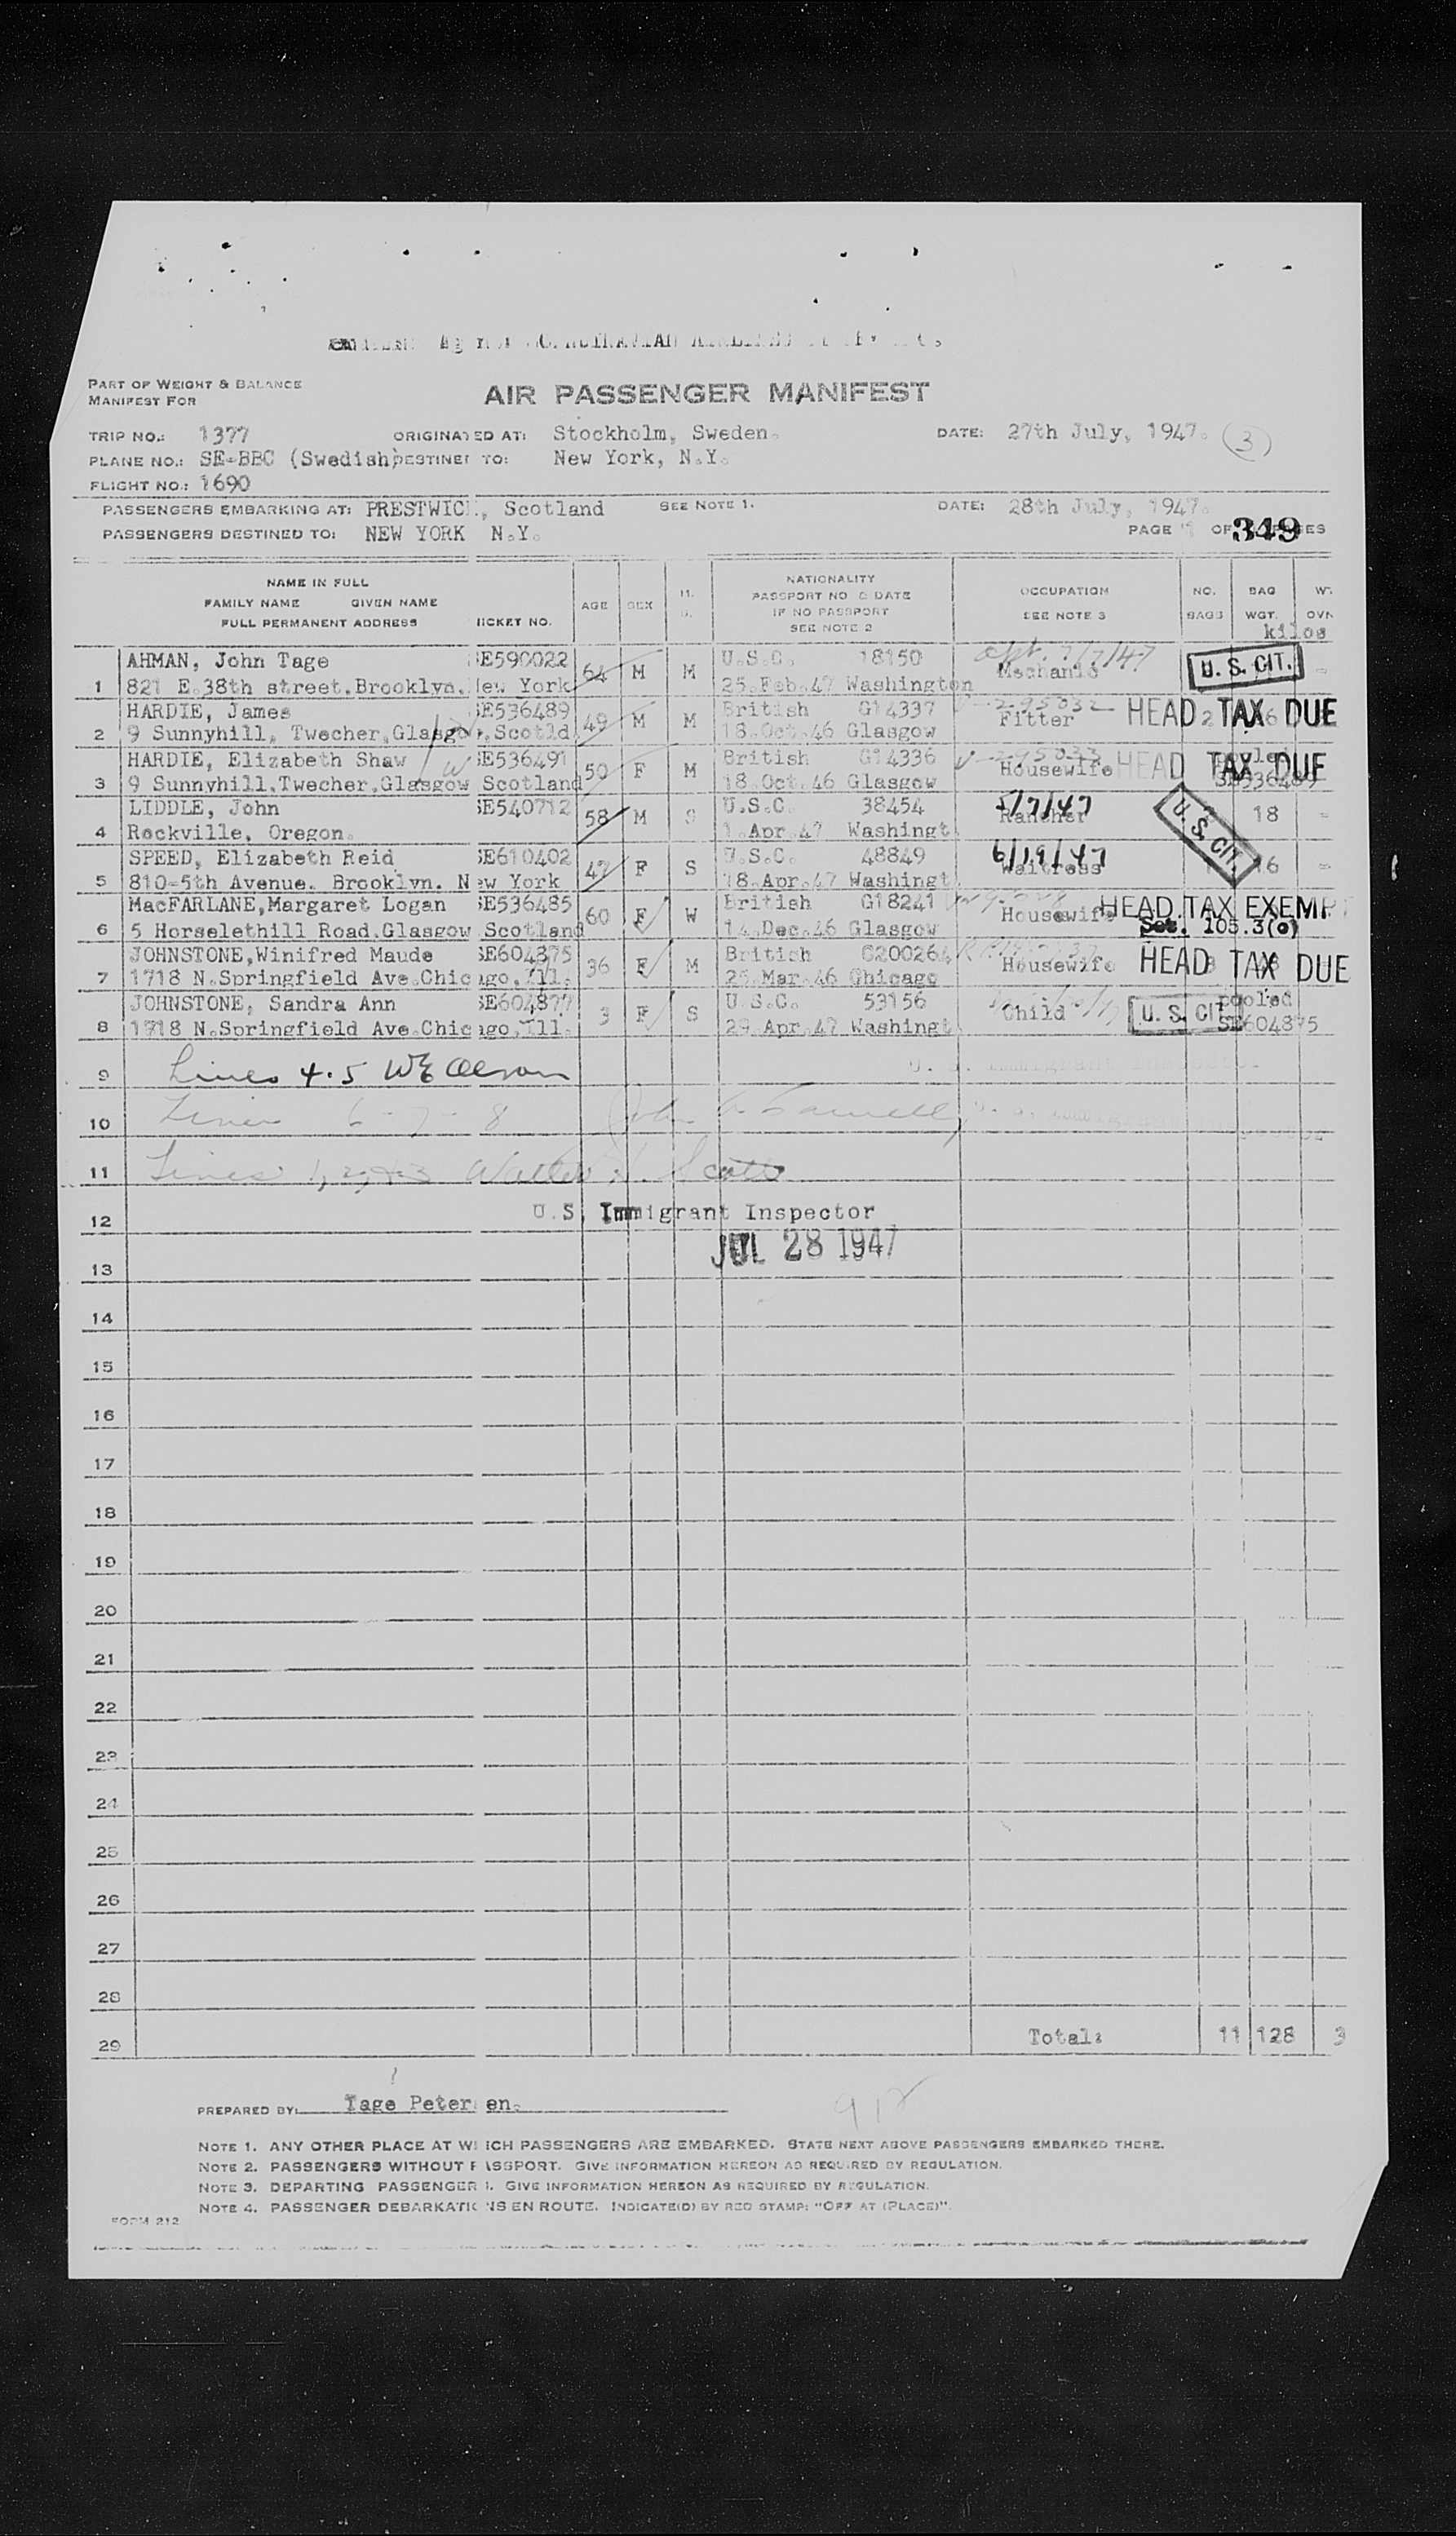 PART OF WEIGHT & BALANCE
MANIFEST FOR
AIR PASSENGER MANIFEST
TRIP NO.: 1377 ORIGINATED AT: Stockholm, Sweden. DATE: 27th July, 1947. (3)
PLANE NO.: SE-BBC (Swedish) DESTINED TO: New York, N.Y.
FLIGHT NO.: 1690
PASSENGERS EMBARKING AT: PRESTWICK, Scotland SEE NOTE 1. DATE: 28th July, 1947.
PASSENGERS DESTINED TO: NEW YORK N.Y. PAGE OF 349
NAME IN FULL
FAMILY NAME GIVEN NAME
FULL PERMANENT ADDRESS
TICKET NO. AGE SEX
NATIONALITY
PASSPORT NO & DATE
IF NO PASSPORT
SEE NOTE 2
OCCUPATION
SEE NOTE 3
NO.
BAGS
BAG
WGT.
kilos
AHMAN, John Tage SE590022 U.S.C. 18150 7/7/47
1 821 E.38th street.Brooklyn. New York 64 M M 25.Feb.47 Washington Mechanic U.S. CIT. -
HARDIE, James SE536489 British G14337
2 9 Sunnyhill, Twecher,Glasgow, Scotld 49 M M 18.Oct.46 Glasgow Fitter HEAD TAX DUE
HARDIE, Elizabeth Shaw SE536491 British G14336
3 9 Sunnyhill.Twecher.Glasgow Scotland 50 F M 18.Oct.46 Glasgow Housewife HEAD TAX DUE
LIDDLE, John SE540712 U.S.C. 38454 5/7/47
4 Rockville, Oregon. 58 M S 1.Apr.47 Washingt. Rancher U.S. CIT. 18 -
SPEED, Elizabeth Reid SE610402 U.S.C. 48849 6/19/47
5 810-5th Avenue. Brooklyn. New York 47 F S 18.Apr.47 Washingt. Waitress 16 -
MacFARLANE,Margaret Logan SE536485 British G18241
6 5 Horselethill Road.Glasgow Scotland 60 F W 14.Dec.46 Glasgow Housewife HEAD TAX EXEMPT
Sec. 105.3(c)
JOHNSTONE,Winifred Maude SE604875 British C200264
7 1718 N.Springfield Ave.Chicago,Ill. 36 F M 25.Mar.46 Chicago Housewife HEAD TAX DUE
JOHNSTONE, Sandra Ann SE604877 U.S.C. 53156 pooled
8 1718 N.Springfield Ave.Chicago,Ill. 3 F S 29.Apr.47 Washingt. Child U.S. CIT SE604875
9 Lines 4.5
10 Lines 6 - 7 - 8
11 Lines 1, 2, & 3 Walter Scott
12 U.S. Immigrant Inspector
JUL 28 1947
13
14
15
16
17
18
19
20
21
22
23
24
25
26
27
28
29 Total: 11 128 3
PREPARED BY: Tage Petersen.
NOTE 1. ANY OTHER PLACE AT WHICH PASSENGERS ARE EMBARKED. STATE NEXT ABOVE PASSENGERS EMBARKED THERE.
NOTE 2. PASSENGERS WITHOUT PASSPORT. GIVE INFORMATION HEREON AS REQUIRED BY REGULATION.
NOTE 3. DEPARTING PASSENGERS. GIVE INFORMATION HEREON AS REQUIRED BY REGULATION.
NOTE 4. PASSENGER DEBARKATIONS EN ROUTE. INDICATE(D) BY RED STAMP: "OFF AT (PLACE)".
FORM 212